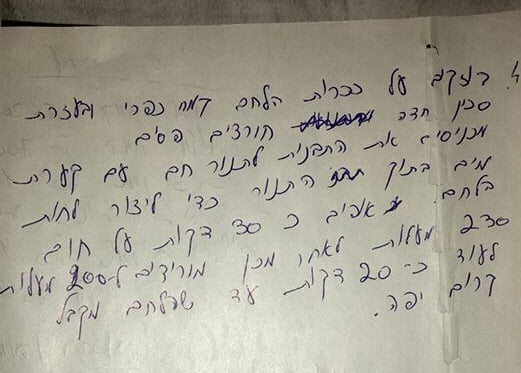 4. בוזקים על ככרות הלחם קמח כפרי ובעזרת
סכין חדה חורצים פסים
מכניסים את התבנית לתנור חם עם קערת
מים בתוך התנור כדי ליצור לחות
בלחם. אופים כ 30 דקות על חום
230 מעלות לאחר מכן מורידים ל-200 מעלות
לעוד כ-20 דקות עד שהלחם מקבל
קרום יפה.